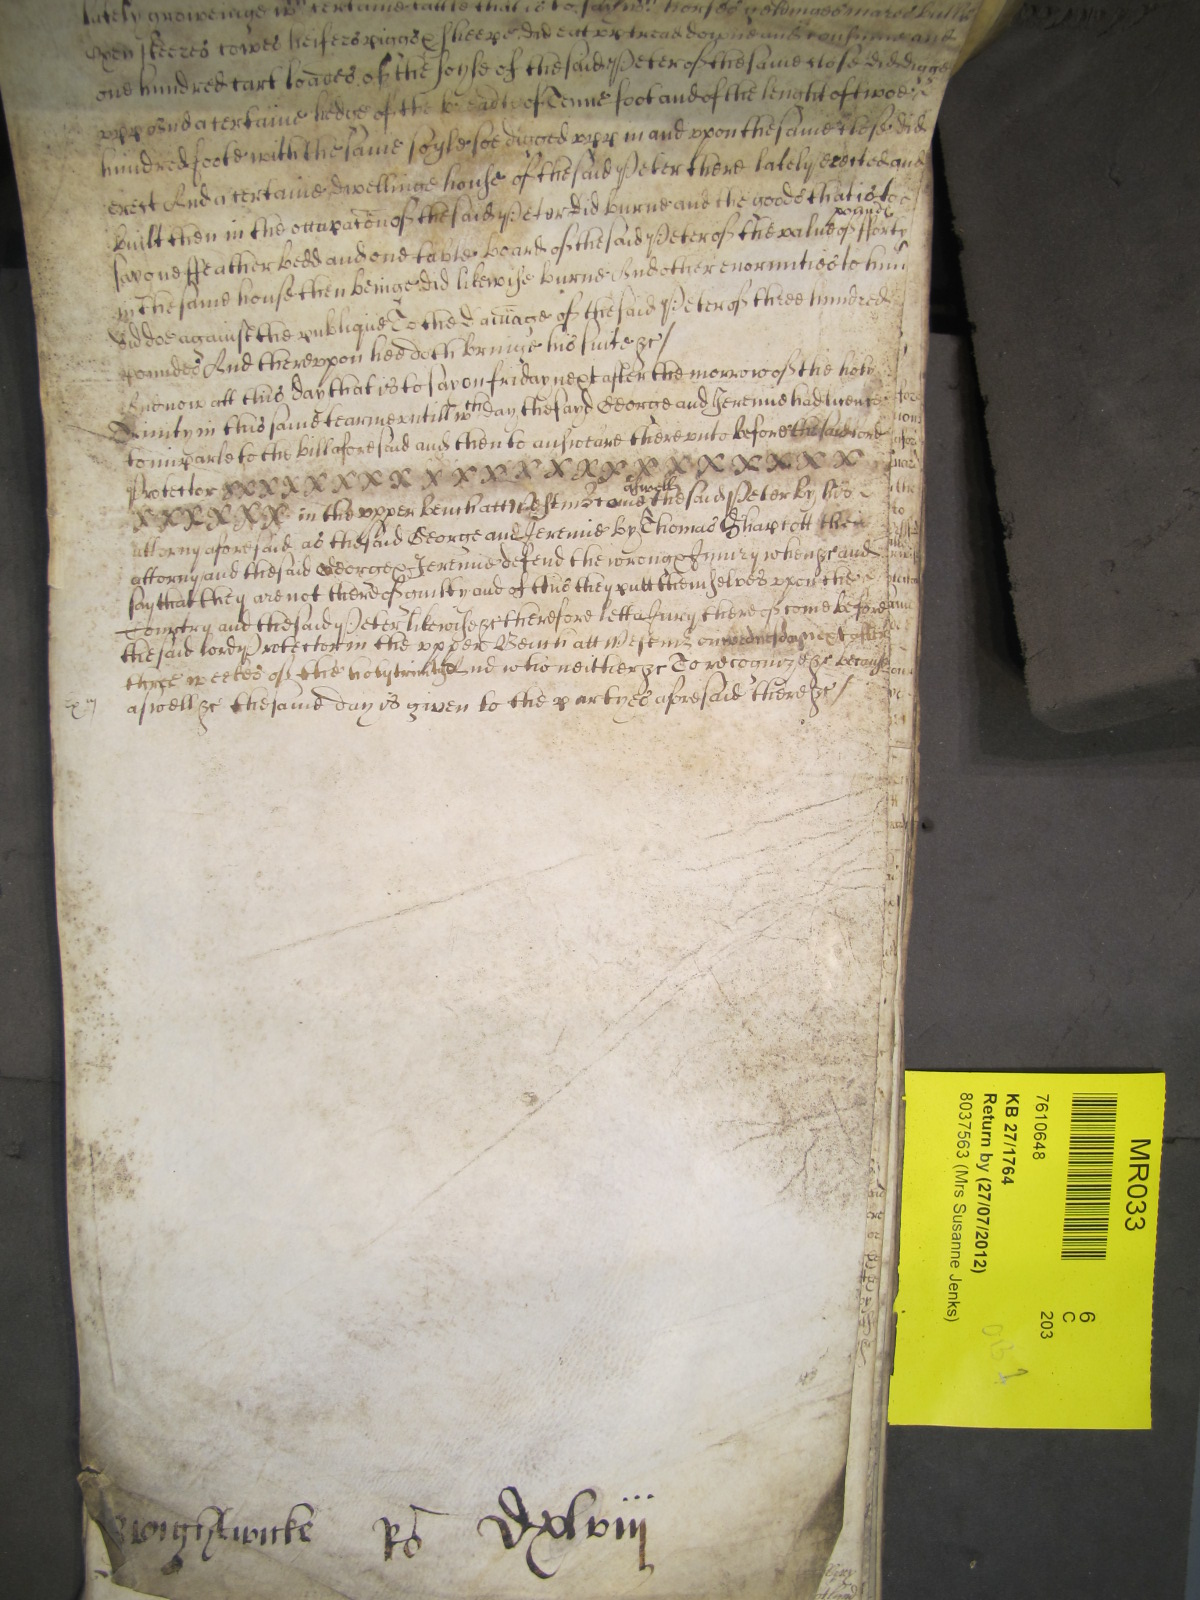 lately groweinge wth certaine cattle that is to say wth horses geldinges mares bulls
oxen steeres cowes heifers piggs & sheepe did eat upp tread downe and consume and
one hundred cart loades of the soyle of the said Peter of the same close did digge
upp And a certaine hedge of the breadth of Tenne foot and of the lenght of twoe
hundred foote with the same soyle soe digged upp in and uppon the same close did
erect And a certaine dwellinge house of the said Peter there lately erected and
built then in the occupac̃on of the said Peter did burne and the goods that is to
pounds
say one ffeather bedd and one table board of the said Peter of the value of fforty
in the same house then beinge did likewise burne And other enormities to him
did doe against the publique To the damage of the said Peter of three hundred
poundes And thereuppon hee doth bringe his suite &c/
And now att this day that is to say on friday next after the morrow of the holy
Trinity in this same tearme untill wch day the sayd George and Jeremie had licence
to imparle to the bill aforesaid and then to answeare thereunto before the said lord
Protector xxxxxxxxxxxxxxxxxxxx
aswell
xxxxxx in the upper bench att Westmr come the said Peter by his
attorny aforesaid as the said George and Jeremie by Thomas Sharcott their
attorny and the said George & Jeremie defend the wrong & Jniury when &c and
say that they are not thereof guilty and of this they putt themselves uppon the
Country and the said Peter likewise &c therefore lett a Jury thereof come before
the said lord Protector in the upper Bench att Westmr on wednesday next after
three weekes of the holy trinity And who neither &c To recognize &c because
aswell &c the same day is given to the partyes aforesaid there &c/
Wightwicke Ro Dxlviij
MR033
7610648
KB 27/1764
Return by (27/07/2012)
8037563 (Mrs Susanne Jenks)
6
C
203